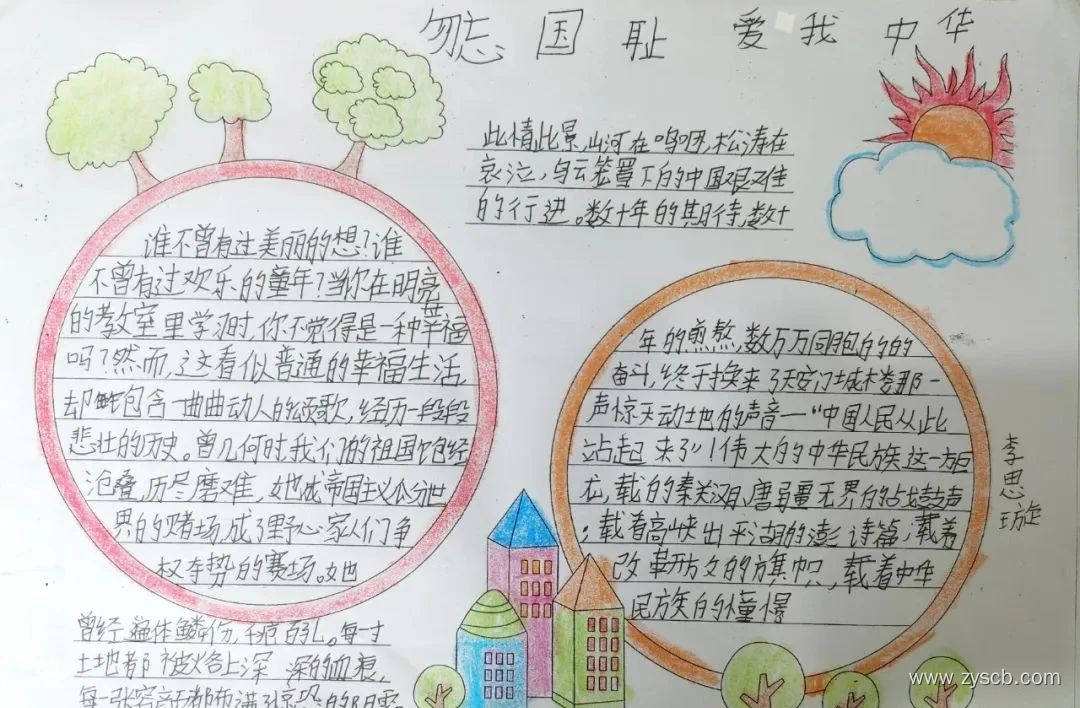 勿忘国耻 爱我中华
谁不曾有过美丽的想?谁
不曾有过欢乐的童年?当你在明亮
的教室里学习时,你不觉得是一种幸福
吗?然而,这看似普通的幸福生活,
却包含一曲曲动人的颂歌,经历一段段
悲壮的历史。曾几何时,我们的祖国饱经
沧叠,历尽磨难,她成帝国主义瓜分世
界的赌场,成了野心家人们争
权夺势的赛场。她
曾经遍体鳞伤,千疮百孔。每一寸
土地都被烙上深深的血痕,
每一张容颜都布满
此情此景,山河在呜咽,松涛在
哀泣,乌云笼罩下的中国艰难
的行进。数十年的期待,数十
年的煎熬,数万万同胞的的
奋斗,终于换来了天安门城楼那一
声惊天动地的声音—“中国人民从此
站起来了”!伟大的中华民族这一方巨
龙,载的秦关汉月,唐寻量无界的鼓声
;载着高峡出平湖的澎诗篇;载着
改革开放的旗帜,载着中华
民族的憧憬
李思璇
www.zyscb.com